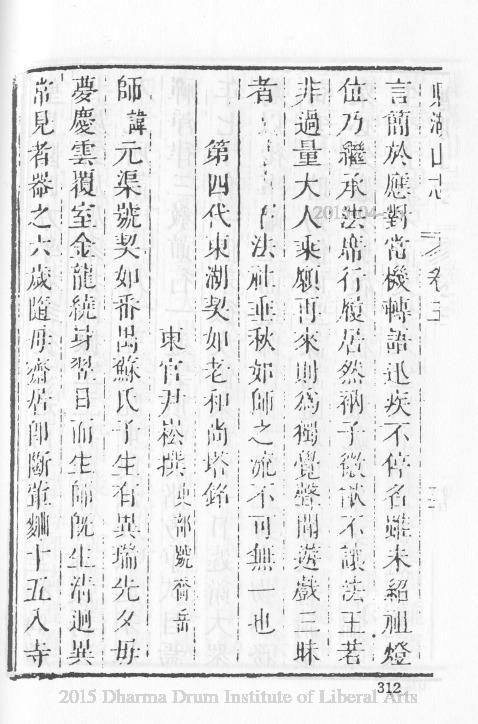 鼎湖山志 卷五
言簡於應對當機轉語迅疾不停名雖未紹祖燈
位乃繼承法席行履居然衲子徽猷不讓法王若
非過量大人乘願再來則為獨覺聲聞遊戲三昧
者 法社垂秋如師之流不可無一也
第四代東湖契如老和尚塔銘
東官尹崧撰 吏部號喬岳
師諱元渠號契如番禺蘇氏子生有異瑞先夕母
夢慶雲覆室金龍繞身翌日而生師既生清迥異
常見者器之六歲隨母齋居即斷葷麵十五入寺
312
2015 Dharma Drum Institute of Liberal Arts